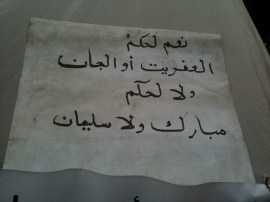 نعم لحكم
العفريت أو الجان
ولا لحكم
مبارك ولا سليمان